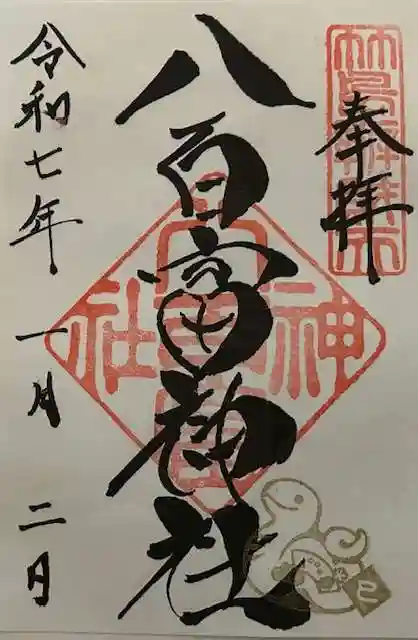 奉拝
八百富神社
令和七年
一月
二日
竹島弁天
八百富
神
社
巳